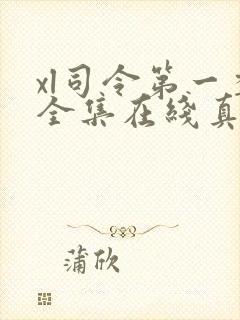 xl司令第一
全集在线真
蒲欣